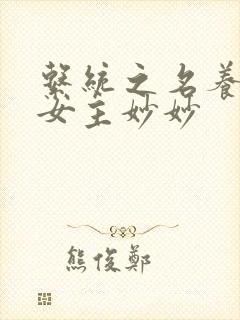 繫統之名養
女主妙妙
熊俊鄭